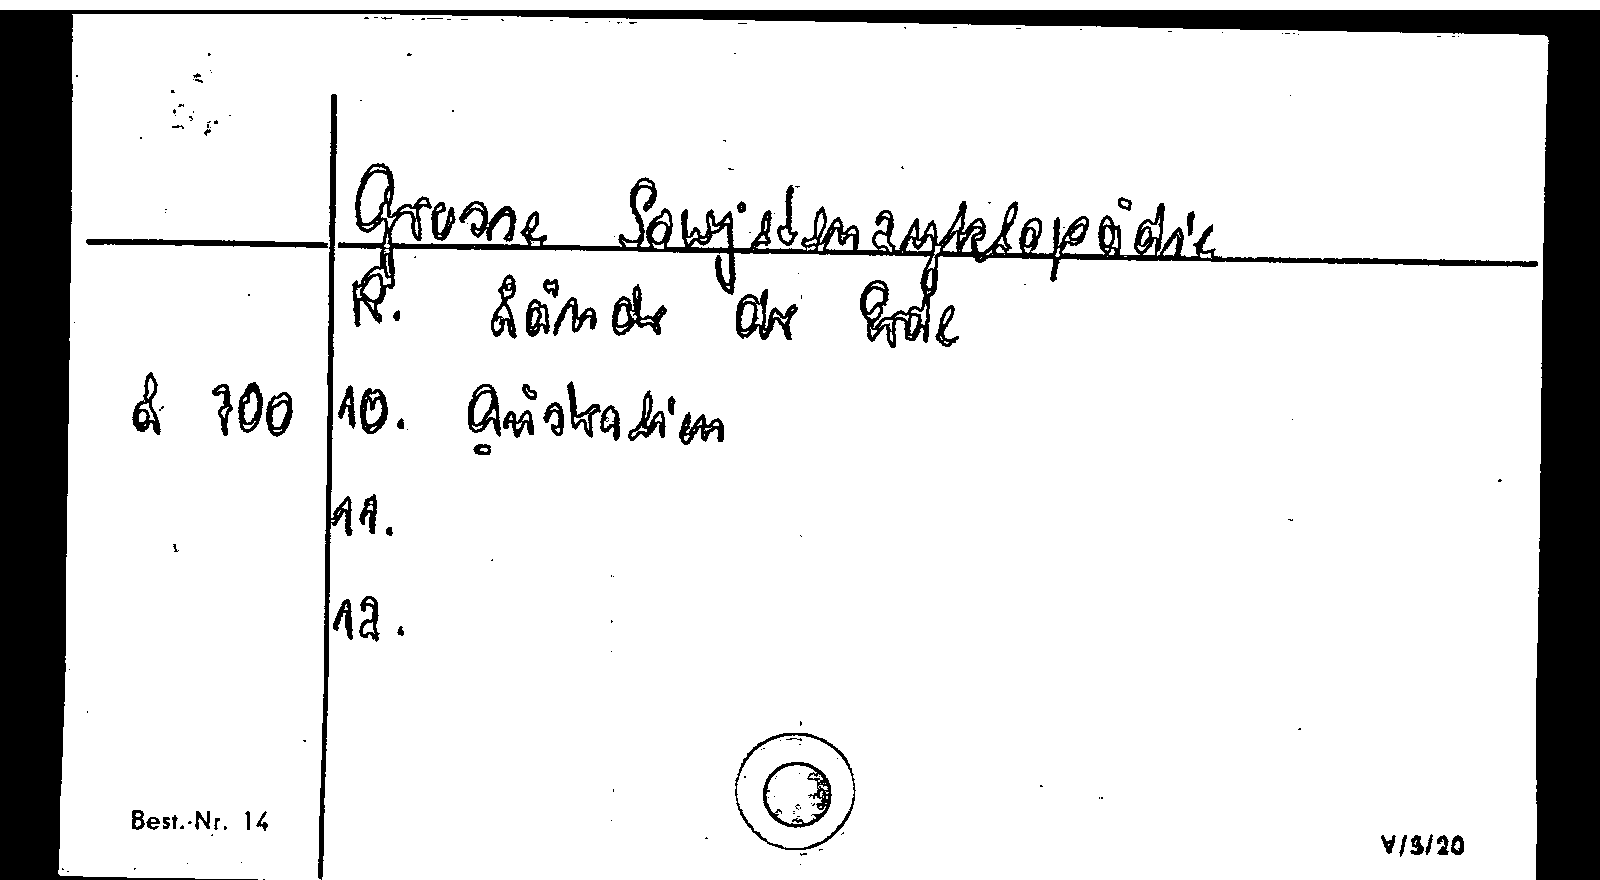 Grosse Sowjetenzyklopädie
R. Länder der Erde
L 700 10. Australien
11.
12.
Best.-Nr. 14
V/3/20